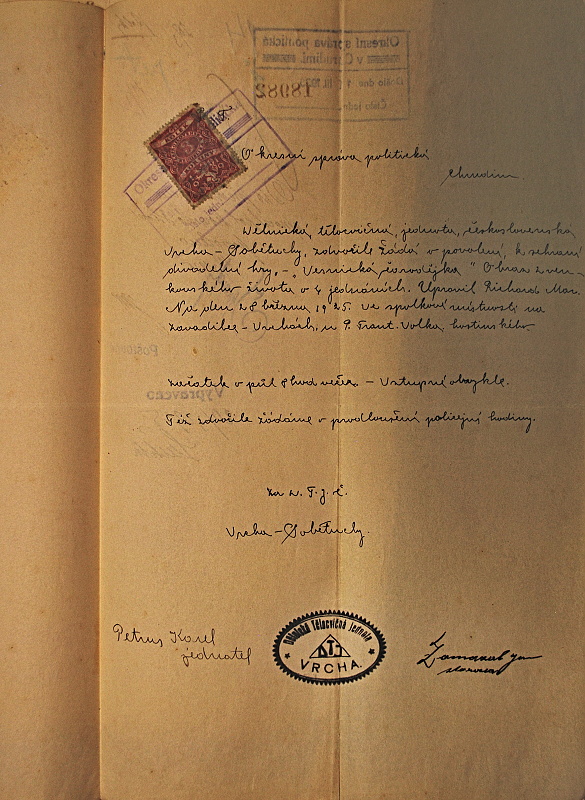 Okresní správa politická
v Chrudimi.
Došlo dne
18982
Číslo jedn.
Okresní správa politická
Chrudim.
Dělnická, tělocvičná, jednota, československá
Vrcha – Sobětuchy, zdvořile žádá o povolení, k sehraní
divadelní hry, – „Vesnická čarodějka“ Obraz z ven-
kovského života o 4 jednáních. Upravil Richard
Na den 28 března 1925. ve spolkové místnosti na
Vrchách, u P. Frant. Volka, hostinského
začátek o půl 8 hod večer. – Vstupné obvyklé.
Též zdvořile žádáme o prodloužení policejní hodiny.
za D. T. j. č.
Vrcha – Sobětuchy.
Petrus Karel
jednatel
Dělnická Tělocvičná jednota
DTJ
VRCHA.
starosta
Vypraveno